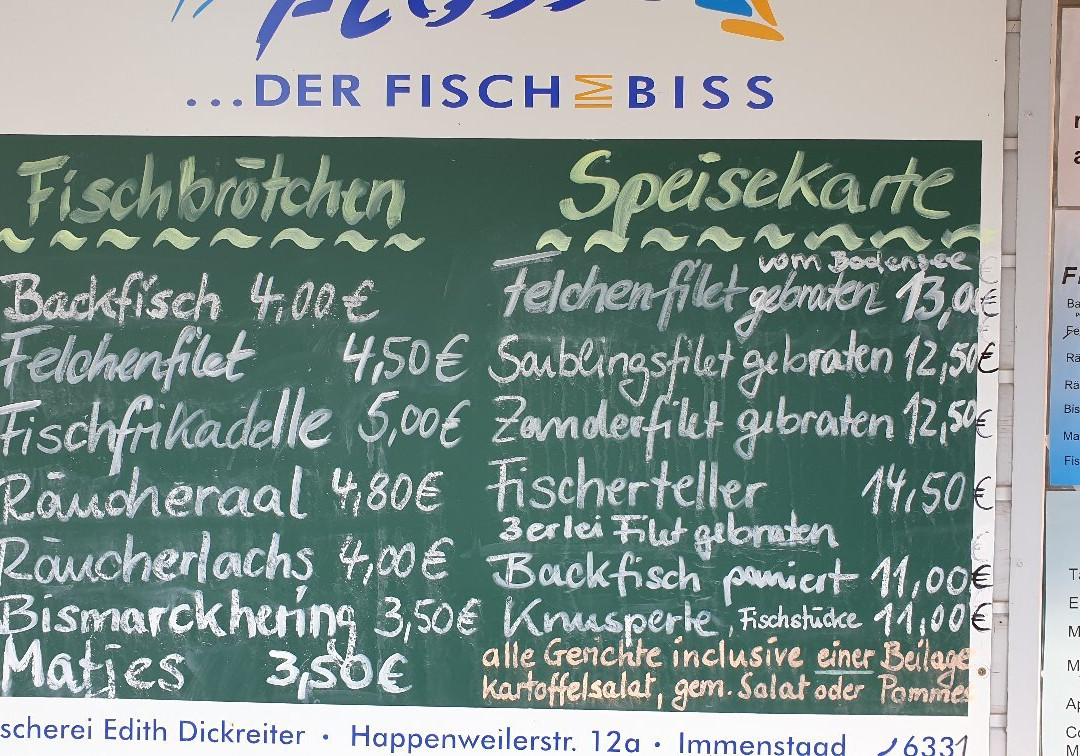 ...DER FISCH IM BISS
Fischbrötchen
Backfisch 4,00 €
Felchenfilet 4,50 €
Fischfrikadelle 5,00 €
Räucheraal 4,80 €
Räucherlachs 4,00 €
Bismarckhering 3,50 €
Matjes 3,50 €
Speisekarte
vom Bodensee
Felchenfilet gebraten 13,00 €
Saiblingsfilet gebraten 12,50 €
Zanderfilet gebraten 12,50 €
Fischerteller 14,50 €
3erlei Filet gebraten
Backfisch paniert 11,00 €
Knusperle, Fischstücke 11,00 €
alle Gerichte inclusive einer Beilage
Kartoffelsalat, gem. Salat oder Pommes
scherei Edith Dickreiter · Happenweilerstr. 12a · Immenstaad 6331